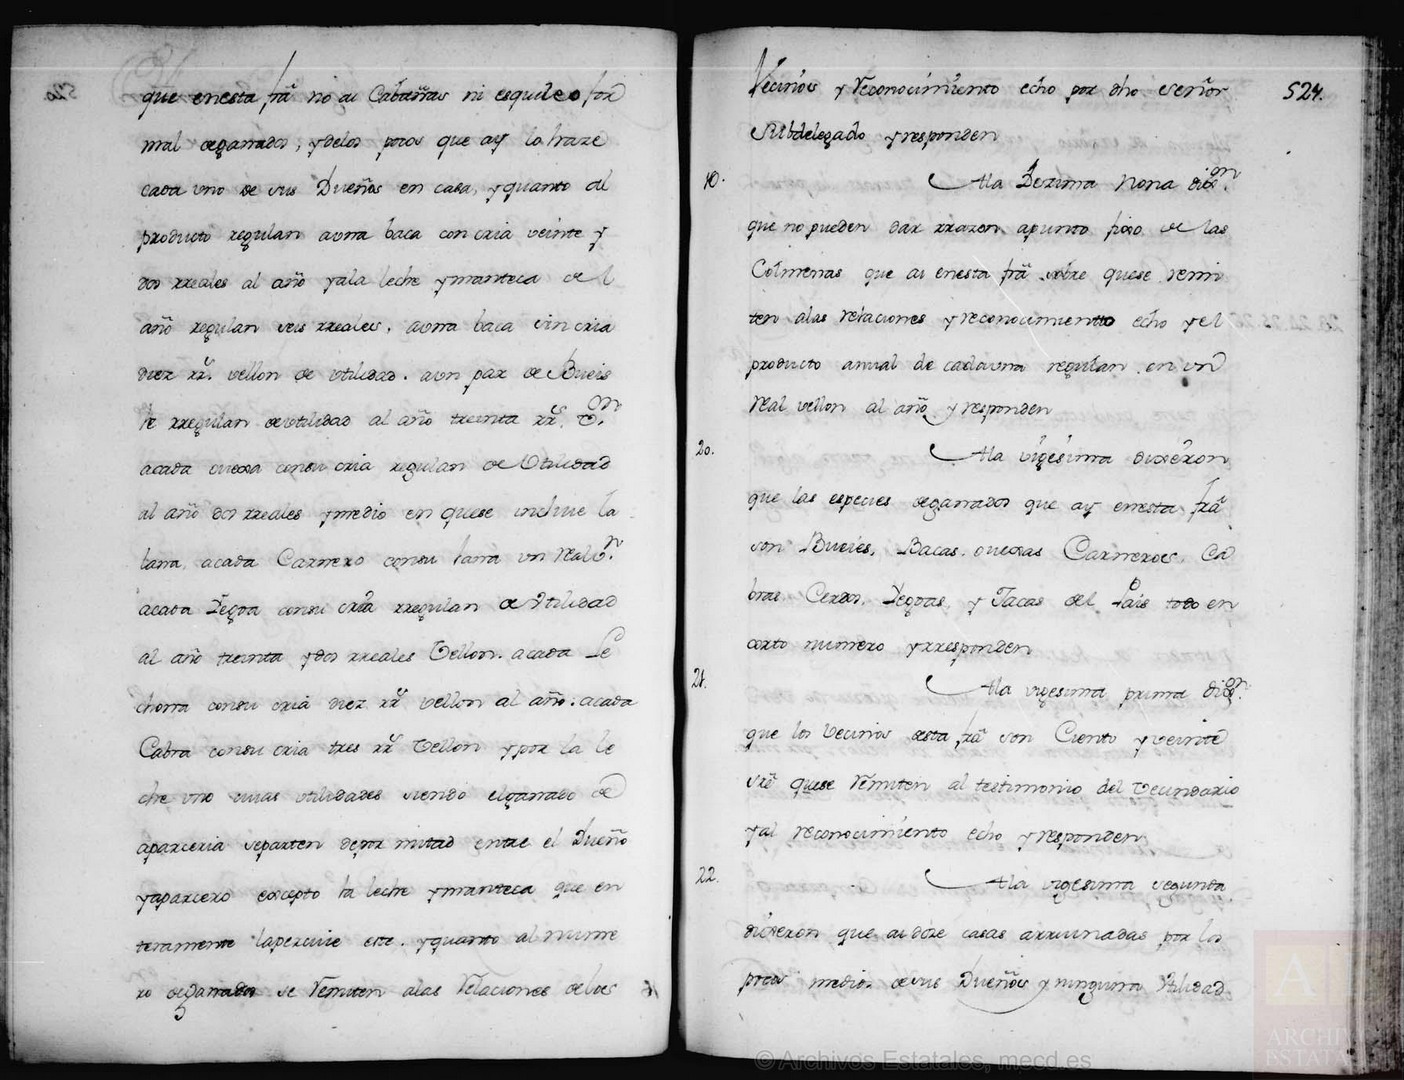 que enesta frã no ai Cabañas ni esquileo for
mal deganados, ydelos pocos que ay lo haze
cada vno de sus Dueños en casa, yquanto al
producto regulan avna baca con cria veinte y
dos rreales al año yala leche ymanteca del
año regulan seis rreales, avna baca sin cria
diez rrs. vellon de vtilidad. aun par de Bueis
le rregulan devtilidad al año treinta rrs. Von.
acada ouexa consu cria regulan de Vtilidad
al año dos rreales ymedio en quese incluie la
lana, acada Carnero consu lana vn realVn.
acada Yegoa consu cria rregulan de Vtilidad
al año treinta ydos rreales Vellon. acada Le
chona consu cria diez rrs vellon al año. acada
Cabra consu cria tres rrs Vellon ypor la le
che vno cuias vtilidades siendo elganado de
aparceria separten depor mitad entre el Dueño
yaparcero excepto la leche ymanteca que en
teramente lapercive este. yquanto al nume
ro deganados se Remiten alas Relaciones delos
524.
Vecinos y Reconocimiento echo por dho señor
Subdelegado yresponden
19. Ala Dezima Nona dixon.
que no pueden dar rrazon apunto fixo de las
Colmenas que ai enesta frã sobre quese remi
ten alas relaciones yreconocimiento echo yel
producto anual de cadauna regulan en vn
real vellon al año yresponden
20. Ala vigesima dixeron
que las especies deganados que ay enesta frã
son Bueies, Bacas, ouexas Carneros, Ca
bras Cerdos, Yegoas, y Jacas del Pais todo en
corto numero yrresponden
21. Ala vigesima prima dixon.
que los Vecinos desta frã son Ciento yveinte
sre quese Remiten al testimonio del Vecindario
yal reconocimiento echo yresponden
22. Ala vigesima segunda
dixeron que ai doze casas arruinadas por los
pocos medios desus Dueños yninguna Vtilidad
© Archivos Estatales, mecd.es
ARCHIVOS
ESTATALES